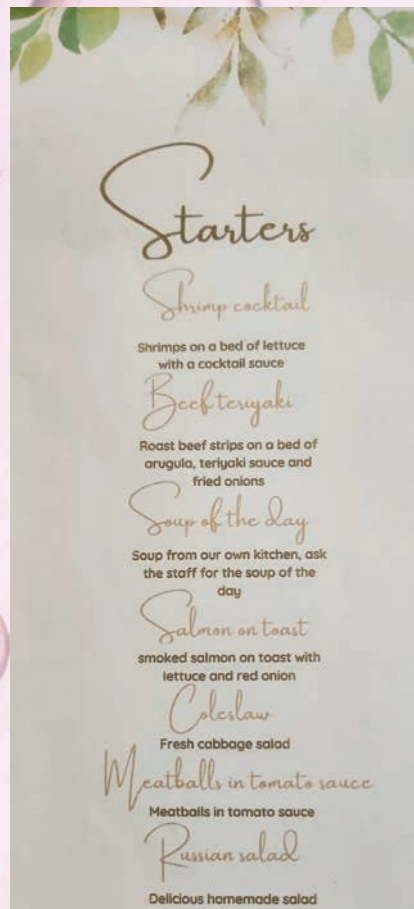 Starters
Shrimp cocktail
Shrimps on a bed of lettuce
with a cocktail sauce
Beef teriyaki
Roast beef strips on a bed of
arugula, teriyaki sauce and
fried onions
Soup of the day
Soup from our own kitchen, ask
the staff for the soup of the
day
Salmon on toast
smoked salmon on toast with
lettuce and red onion
Coleslaw
Fresh cabbage salad
Meatballs in tomato sauce
Meatballs in tomato sauce
Russian salad
Delicious homemade salad